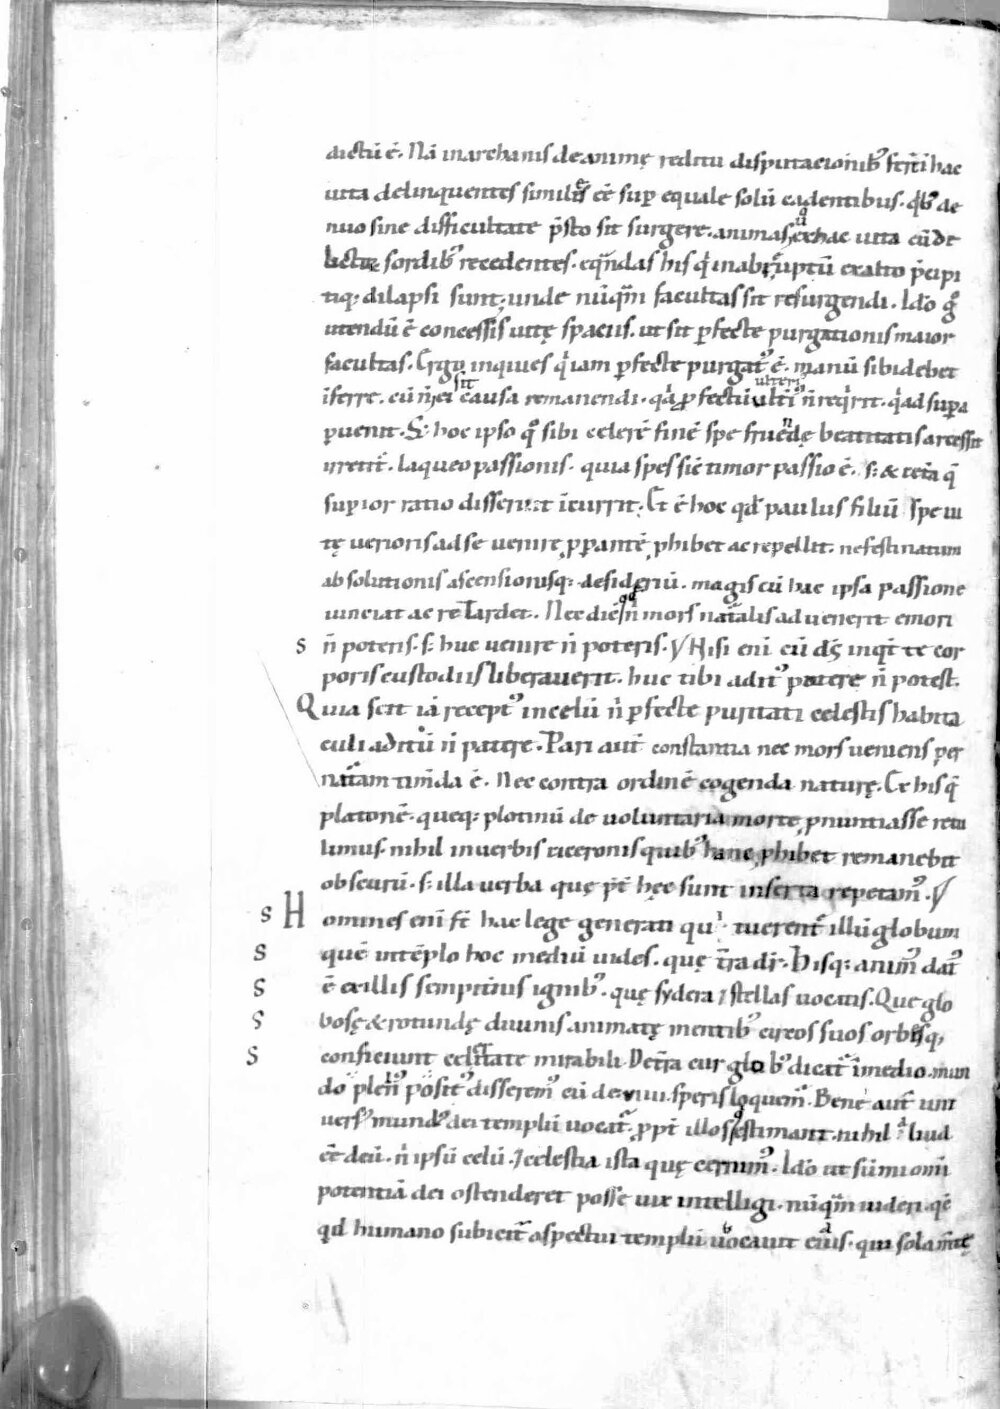 dictū ē. Nā in archanis de animę reditu disputacionib; fert̄ī hac
uita delinquentes similis ē sup equale solū cadentibus. qb; de
nuo sine difficultate p̄sto sit surgere. animas ū ex hac uita cū de
lictorū sordib; recedentes. equandas his qi in abruptū ex alto p̄cipi
tiq; dilapsi sunt. unde nūq̄m facultas sit resurgendi. Ido qo
utendū ē concessis uitę spaciis. ut sit pfecte purgationis maior
facultas. Ergo inquies qi iam pfecte purgat; ē. manū sibi debet
īferre. cū n̄ ei sit causa remanendi. qa pfectū ulteri n̄ reqirit. qi ad supa
puenit. S; hoc ipso qo sibi celerē finē spe fruendę beatitatis arcessit
irretit̄. laqueo passionis. quia spes sic timor passio ē. s; & cet̄a q̄
supior ratio disseruit īcurrit. Et ē hoc qd paulus filiū spe ui
tę uerioris ad se uenire ppantē phibet ac repellit. ne festinatum
absolutionis ascensionisq; desideriū. magis cū hac ipsa passione
uinciat ac retardet. Nec dic̄ qd n̄ mors nat̄alis aduenerit emori
s n̄ poteris. s; huc uenire n̄ poteris. Nisi eni cū ds̄ inqt te cor
poris custodiis liberauerit. huc tibi adit; patere n̄ potest.
Quia scit iā recept; in celū n̄ pfecte puritati celestis habita
culi aditū n̄ patere. Pari aut̄ constantia nec mors ueniens per
nat̄am tim̄da ē. Nec contra ordinē cogenda naturę. Ex his q̄
platonē. queq; plotinū de uoluntaria morte pnuntiasse retu
limus. nihil in uerbis ciceronis quib; hanc phibet remanebit
obscurū. s; illa uerba quę p̄t hęc sunt inserta repetam;.
s Homines eni st̄ hac lege generati qui tuerent; illū globum
s quē intēplo hoc mediū uides. quę t̄ra dr̄. Hisq; anim; dat;
s ē ex illis sempitnis ignib;. quę sydera & stellas uocatis. Que glo
s bosę & rotundę diuinis animatę mentib; circos suos orbesq;
s conficiunt celeritate mirabili. De t̄ra cur glob; dicat̄ ī medio mun
do posit; plen; disserem; cū de viiii. speris loquem̄. Bene aut̄ uni
uers; mund; dei templū uocat̄. ppt̄ illos q estimant. nihil aliud
ee̅ deū. n̄ ipsū celū. & celestia ista quę cernim;. Ido ut sūmi om̄i
potentiā dei ostenderet posse uix intelligi. nūq̄m uideri. qc̄
qd humano subicit̄ aspectui templū uocauit eius. qui sola m̄tę